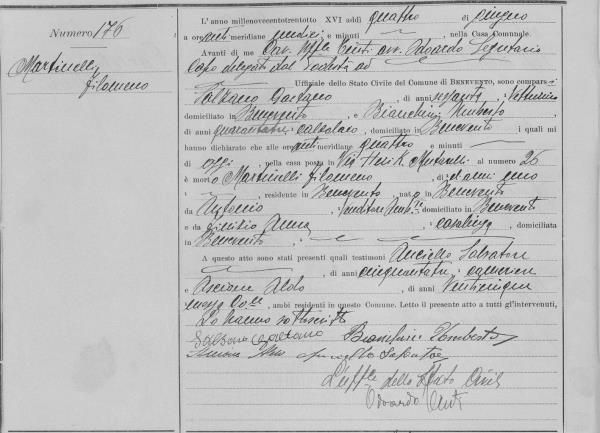 Numero 176
Martinelli
Filomeno
L'anno millenovecentotrentotto XVI addì quattro di giugno
a ore anti meridiane undici e minuti , nella Casa Comunale.
Avanti di me Cav. Uff. Conti avv. Edoardo Segretario
Capo delegato dal Podestà ad
Uffiziale dello Stato Civile del Comune di BENEVENTO, sono comparsi
Gaetano , di anni sessanta,
domiciliato in Benevento , e Bianchini Umberto
di anni quarantatre calzolaio, domiciliato in Benevento i quali mi
hanno dichiarato che alle ore anti meridiane quattro e minuti
di oggi , nella casa posta in Via al numero 26
è morto Martinelli Filomeno , di anni uno
, residente in Benevento nato in Benevento
da Antonio , venditore amb. domiciliato in Benevento
e da Anna , casalinga, domiciliata
in Benevento
A questo atto sono stati presenti quali testimoni Auciello Salvatore
, di anni cinquantatre,
e Ascione Aldo , di anni venticinque
, ambi residenti in questo Comune. Letto il presente atto a tutti gl'intervenuti,
Lo hanno sottoscritto
Gaetano Bianchini Umberto
Auciello Salvatore
L'Uff. dello Stato Civile
Edoardo Conti